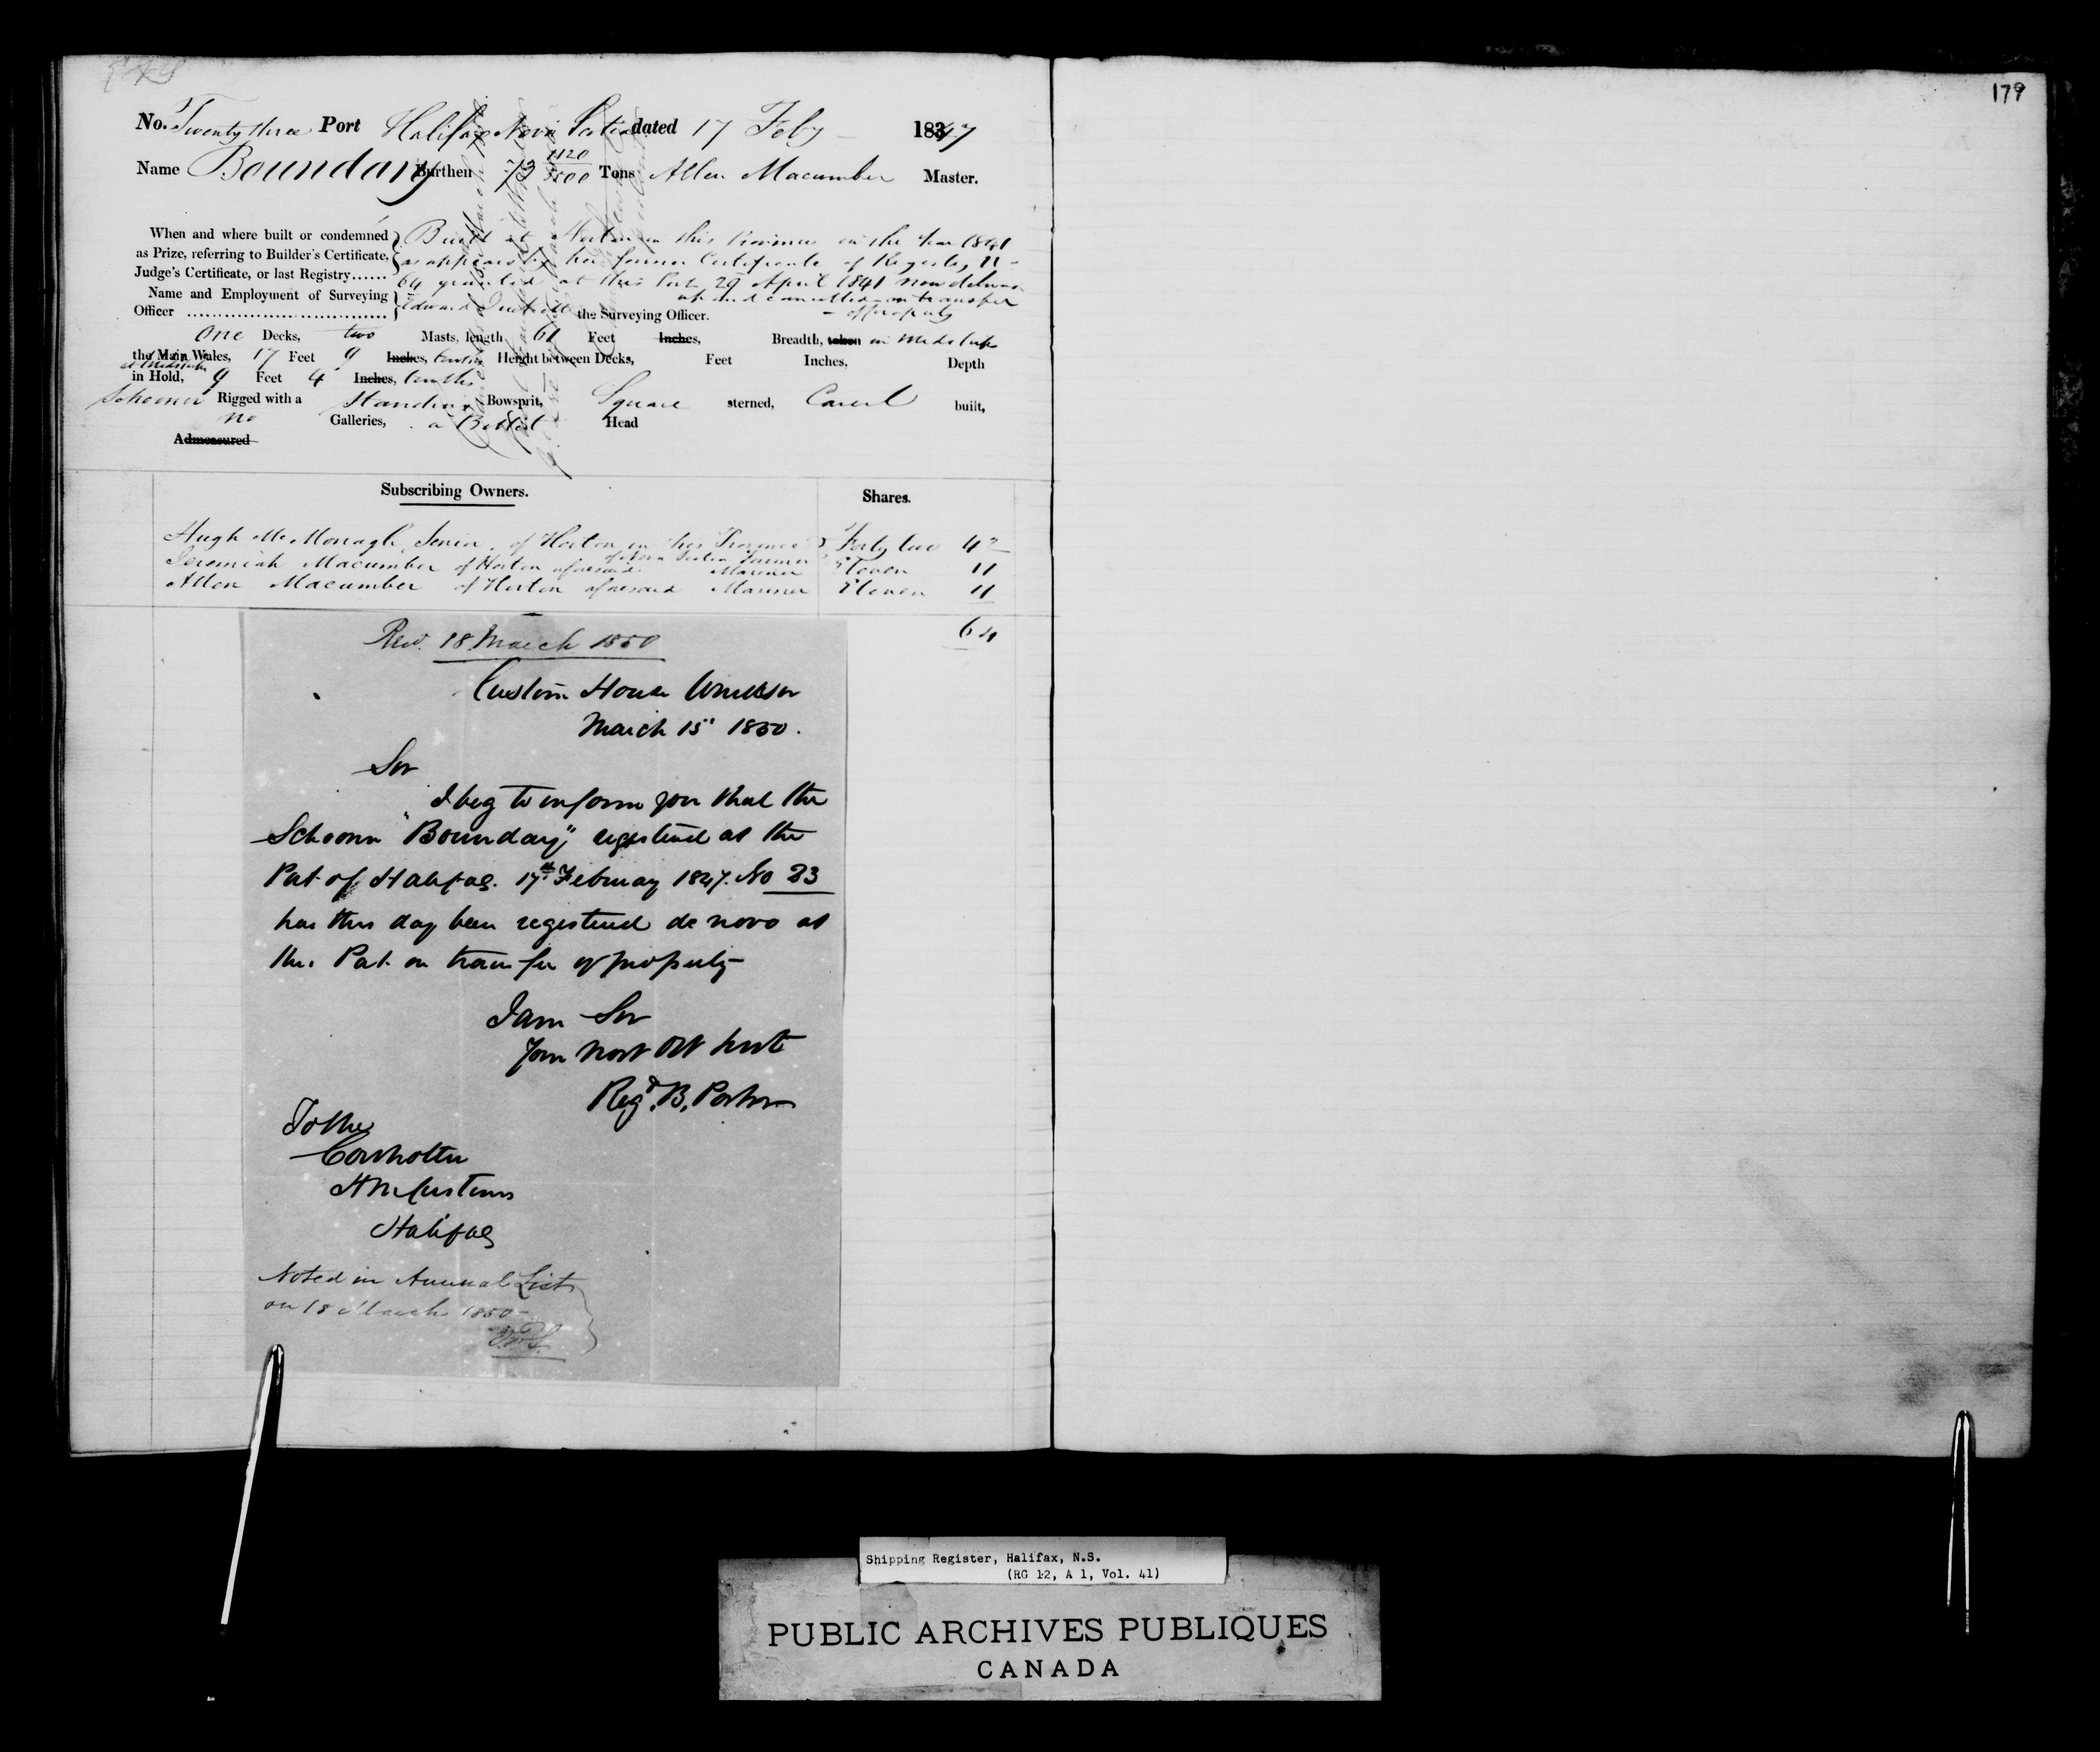 179
No. Twenty three Port Halifax Nova Scotia dated 17 Feby 1847
Name Boundary Burthen 73 1120/3500 Tons Allen Macumber Master.
When and where built or condemned as Prize, referring to Builder's Certificate, Judge's Certificate, or last Registry......
Built at Horton in this Province in the Year 1841
as appears by her former Certificate of Registry N
64 granted at this Port 29 April 1841 now deliver
up and cancelled on transfer
of property
Name and Employment of Surveying Officer
Edward the Surveying Officer.
One Decks, two Masts, length 61 Feet Inches, Breadth, taken in Midships
the Main Wales, 17 Feet 9 Inches, tenths Height between Decks, Feet Inches, Depth
at Midships
in Hold, 9 Feet 4 Inches, tenths
Schooner Rigged with a Standing Bowsprit, Square sterned, Carvel built,
no Galleries, a Billet Head
Admeasured
Subscribing Owners. Shares.
Hugh McMonagle Senior of Horton in this Province Forty two 42
of Nova Scotia Farmer
Jeremiah Macumber of Horton aforesaid Mariner Eleven 11
Allen Macumber of Horton aforesaid Mariner Eleven 11
64
Recd. 18 March 1850
Custom House Windsor
March 15" 1850.
Sir
I beg to inform you that the
Schooner "Boundary" registered at the
Port of Halifax. 17th February 1847. No 23
has this day been registered de novo at
this Port on transfer of property
I am Sir
Your Most Obt Servt
Regd. B. Porter
To the
Controller
HM Customs
Halifax
Noted in Annual List
on 18 March 1850
Shipping Register, Halifax, N.S.
(RG 12, A 1, Vol. 41)
PUBLIC ARCHIVES PUBLIQUES
CANADA